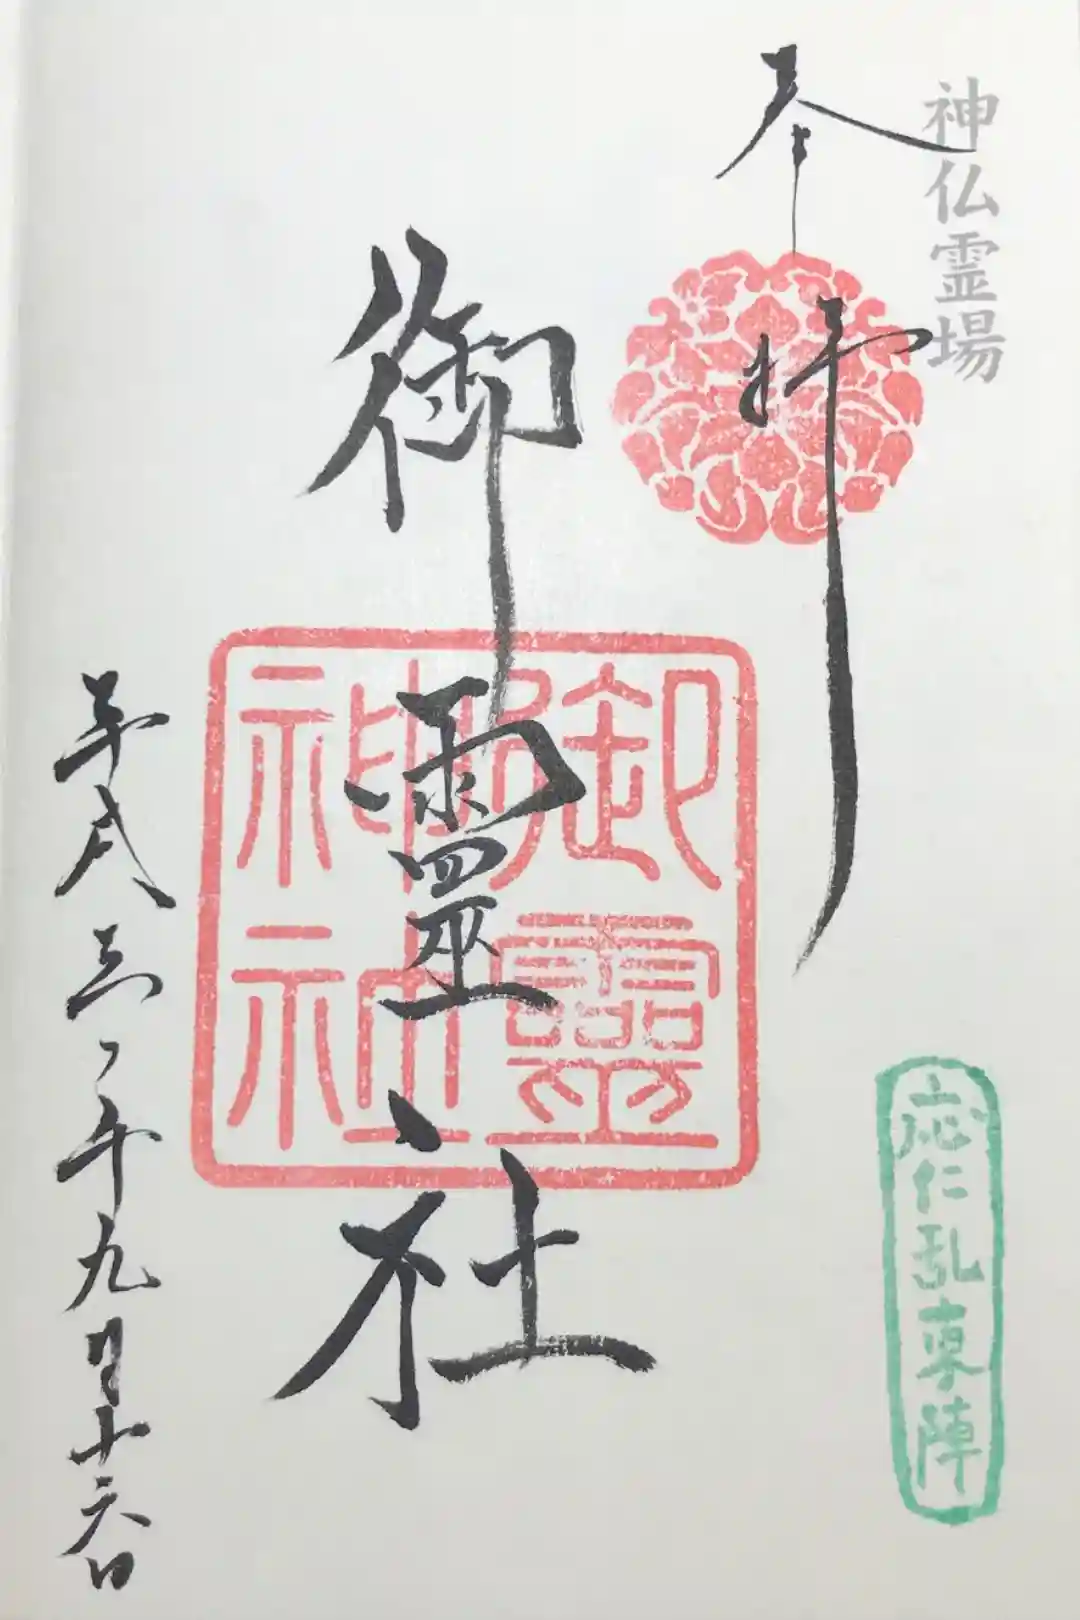 神仏霊場
奉拝
応仁乱東陣
御靈社
御靈
神社
平成三年九月十六日